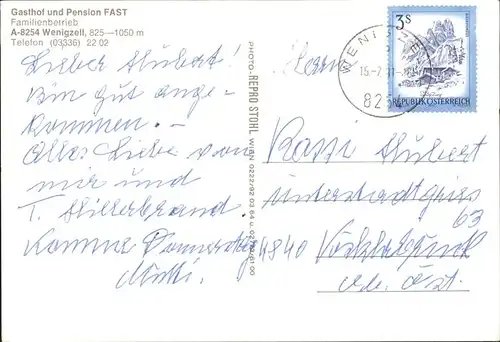 Gasthof und Pension FAST
Familienbetrieb
A-8254 Wenigzell, 825—1050 m
Telefon (03336) 22 02
Lieber Hubert!
Bin gut ange-
kommen. –
Alles Liebe von
mir und
T. Hillerbrand
Komme Donnerstag
Mutti.
PHOTO-REPRO STOHL WIEN
3 S
REPUBLIK ÖSTERREICH
WENIGZELL
8254
Herrn
Hubert
63
4840 Vöcklabruck